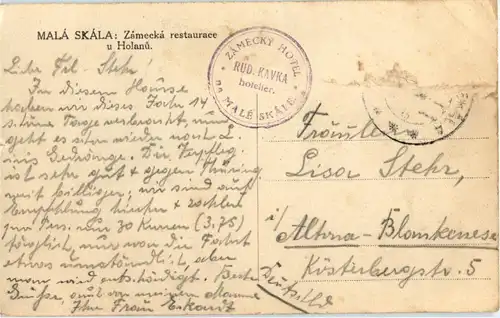 MALÁ SKÁLA: Zámecká restaurace
u Holanů.
ZÁMECKÝ HOTEL
RUD. KAVKA
hotelier.
NA MALÉ SKÁLE.
Lieb. Frl. Stehr!
In diesem Hause
haben wir dieses Jahr 14
schöne Tage verbracht, nun
geht es schon wieder nach
ins Gedränge. Die Verpfleg.
ist sehr gut & gegen Thüring
weit billiger, wir sind auf
Empfehlung hierher & zahlen
pro Pers. nur 30 Kronen (3,75)
täglich, nur war die Fahrt
etwas umständlich, aber
man wird entschädigt. Beste
Grüße, auch von meinem Manne
Ihre Frau Eckardt
Fräulein
Lisa Stehr,
i/ Altona-Blankenese
Kösterbergstr. 5
Deutschld